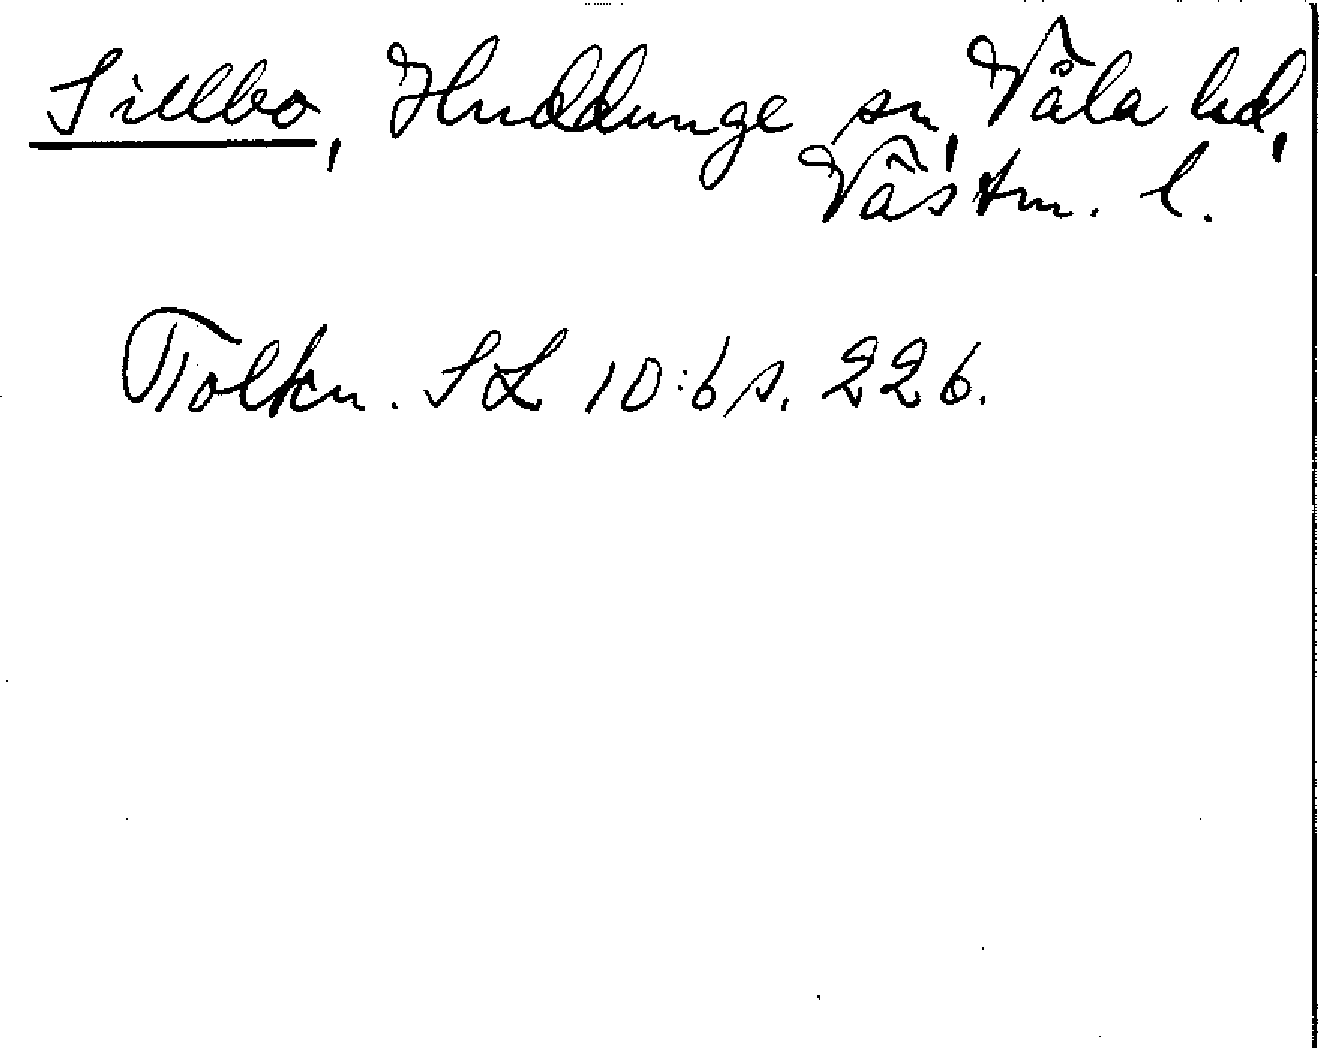 Sillbo, Huddunge sn, Våla hd,
Västm. l.
Tolkn. SL 10:6 s. 226.